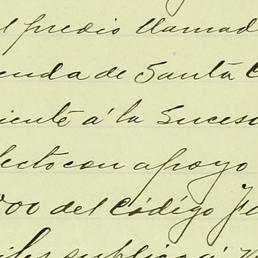 el predio llamad
enda de Santa C
iente á la Suces
ecto con apoyo
00 del Código Fe
suplico á